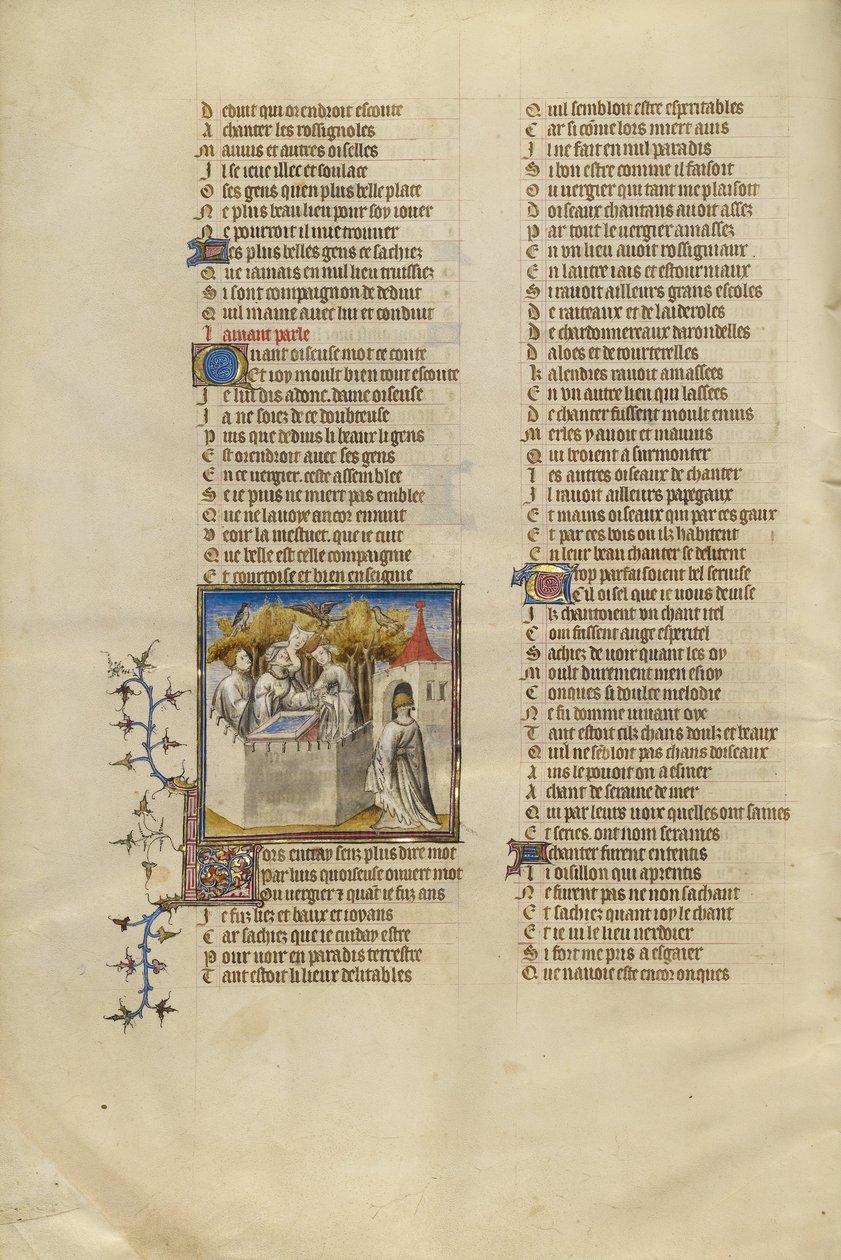 Deduit qui orendroit escoute
A chanter les rossignoles
Mauuis et autres oiselles
Il se ieue illec et soulace
O ses gens quen plus belle place
Ne plus beau lieu pour soy iouer
Ne pourroit il mie trouuer
Les plus belles gens ce sachiez
Que iamais en nul lieu truissiez
Si sont compaignon de deduit
Quil maine auec lui et conduit
lamant parle
Quant oiseuse mot ce conte
Et ioy moult bien tout escoute
Je lui dis adonc. dame oiseuse
Ja ne soiez de ce doubteuse
Puis que deduis li beaux li gens
Est orendroit auec ses gens
En ce vergier. ceste assemblee
Se ie puis ne miert pas emblee
Que ne la uoye encor ennuit
Veoir la mestuet. que ie cuit
Que belle est celle compaignie
Et courtoise et bien enseignie
Lors entray senz plus dire mot
Par luis quoiseuse ouuert mot
Ou vergier ⁊ quāt ie fuz ans
Je fuz liez et baux et ioyans
Car sachiez que ie cuiday estre
Pour uoir en paradis terrestre
Tant estoit li lieux delitables
Quil sembloit estre esperitables
Car si cōme lors miert auis
Il ne fait en nul paradis
Si bon estre comme il faisoit
Ou uergier qui tant me plaisoit
Doiseaux chantans auoit assez
Par tout le uergier amassez
En vn lieu auoit rossigniaux
En lautre iais et estourniaux
Si rauoit ailleurs grans escoles
De raiteaux et de laideroles
De chardonnereaux darondelles
Daloes et de tourterelles
Kalendres rauoit amassees
En vn autre lieu qui lassees
De chanter fussent moult enuis
Merles y auoit et mauuis
Qui beoient a surmonter
Les autres oiseaux de chanter
Il rauoit ailleurs papegaux
Et mains oiseaux qui par ces gaux
Et par ces bois ou ilz habitent
En leur beau chanter se delitent
Trop parfaisoient bel seruise
Cil oisel que ie uous deuise
Ilz chantoient vn chant itel
Com fussent ange esperitel
Sachiez de uoir quant les oy
Moult durement men esioy
Conques si doulce melodie
Ne fu domme uiuant oye
Tant estoit cilz chans doulz et beaux
Quil ne sēbloit pas chans doiseaux
Ains le pouoit on aesmer
A chant de seraine de mer
Qui par leurs uoix quelles ont saines
Et series. ont nom seraines
A chanter furent ententis
Li oisillon qui aprentis
Ne furent pas ne non sachant
Et sachiez quant ioy le chant
Et ie ui le lieu uerdoier
Si fort me pris a esgaier
Que nauoie este encor onques